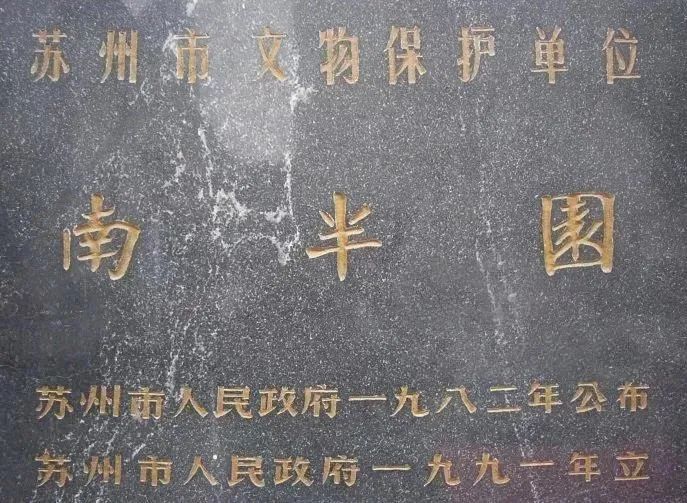 苏州市文物保护单位
南半園
苏州市人民政府一九八二年公布
苏州市人民政府一九九一年立